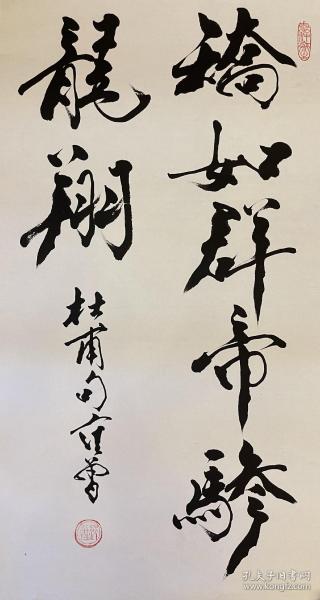 矯如群帝驂
龍翔
杜甫句范曾
孔夫子旧书网